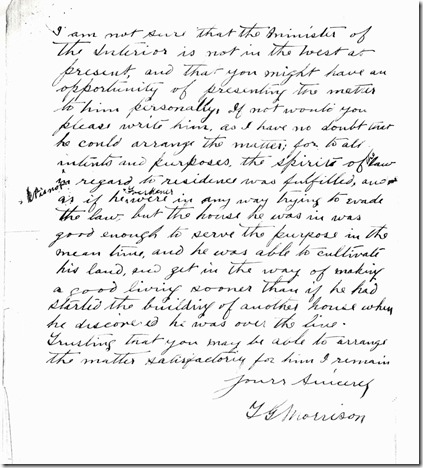 I am not sure that the Minister of
the Interior is not in the West at
present, and that you might have an
opportunity of presenting the matter
to him personally. If not would you
please write him, as I have no doubt that
he could arrange the matter; for to all
intents and purposes, the spirit of law
in regard to residence was fulfilled, and
it is not as if he were in any way trying to evade
the law, but the house he was in was
good enough to serve the purpose in the
mean time, and he was able to cultivate
his land, and get in the way of making
a good living sooner than if he had
started the building of another house when
he discovered he was over the line.
Trusting that you may be able to arrange
the matter satisfactorily for him I remain
Yours Sincerely
Morrison